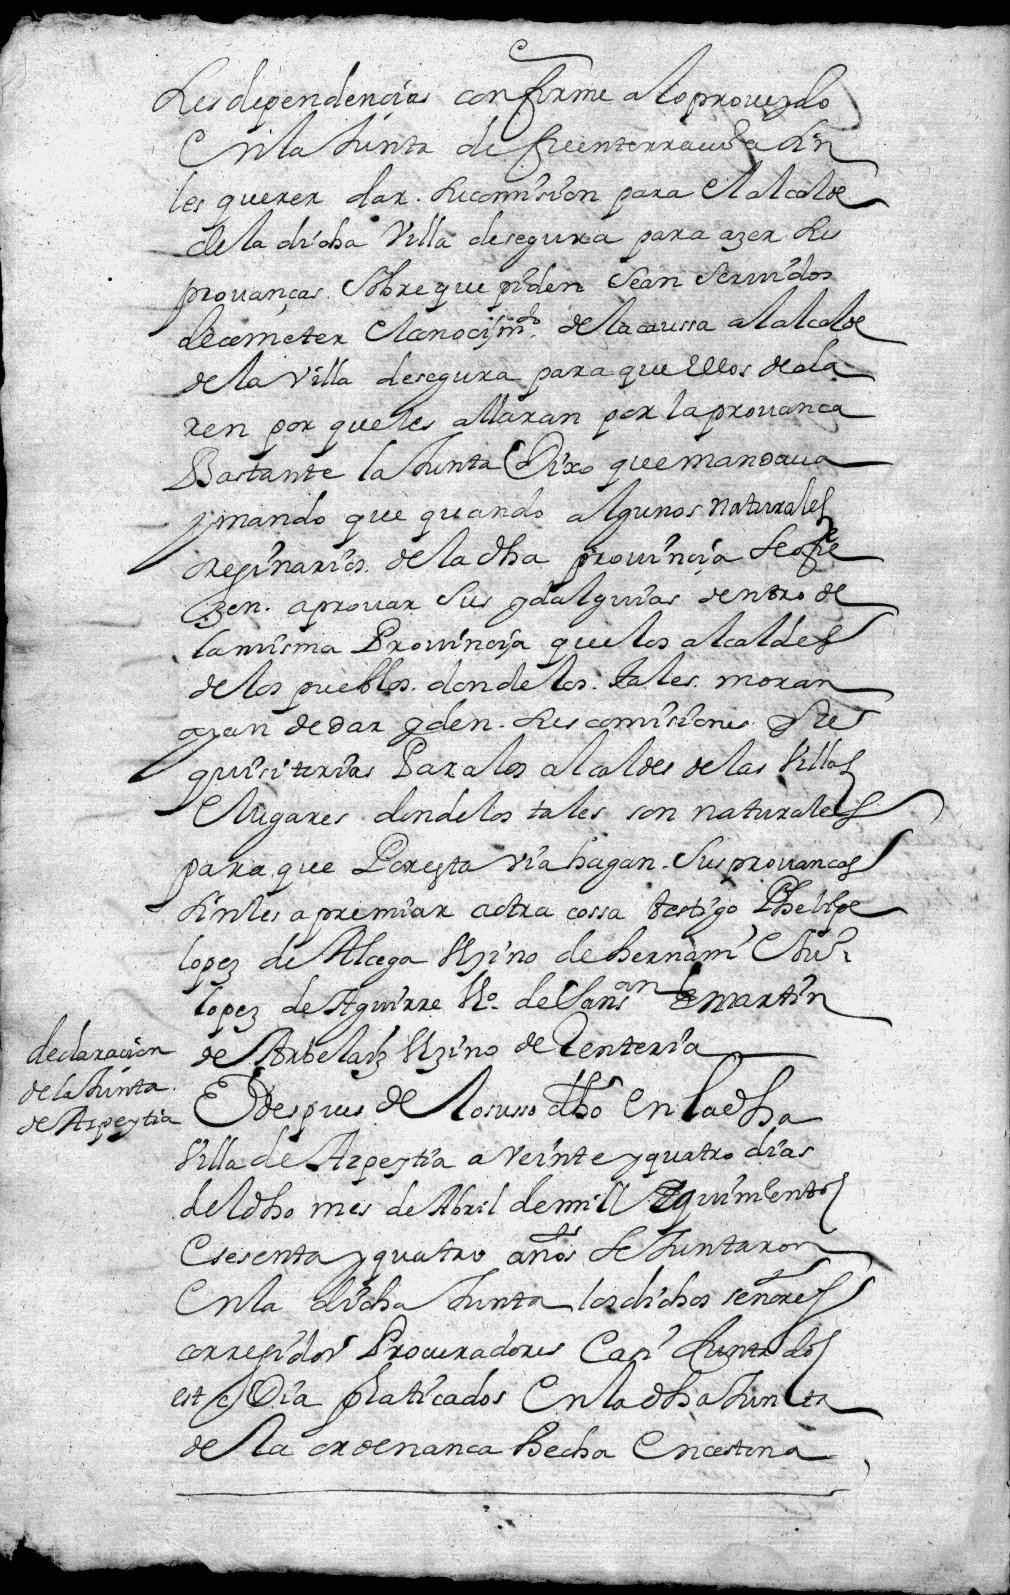 les dependencias confirme alo proueydo
en la Junta de fuenterrauia sin
les querer dar. su comision para el alcalde
de la dicha Villa de segura para azer sus
prouanças. sobre que piden sean seruidos
de cometer el conocimto. de la caussa al alcalde
de la Villa de segura para que ellos decla
ren por que les allaran por la prouança
Bastante la Junta Dixo que mandaua
y mando que quando algunos naturales
origínarios. de la dha prouincia se ofre
zen. aprouar sus ydalguias dentro de
la misma Prouincia que los alcaldes
de los pueblos. donde los. tales. moran
ayan de dar y den. sus comisiones. y Re
quisitorias Para los alcaldes de las Villas
e lugares. donde los tales son naturales
para que Por esta via hagan. Sus prouanças
sin les apremiar a otra cossa testigo Phelipe
lopez de Alcega Vzino de hernani e
lopez de Aguirre Vo. de San San martin
de Arbelaiz Vzino de Renteria
declaracion
de la Junta
de Azpeytia
E despues de lo susso dho en la dha
Villa de Azpeytia a Veinte y quatro dias
del dho mes de Abril de mill E quinientos
e sesenta y quatro años se Juntaron
en la dicha Junta los dichos señores
corregidor Procuradores Casi Juntados
este Dia platicados en la dha Junta
de la ordenança hecha en cestona